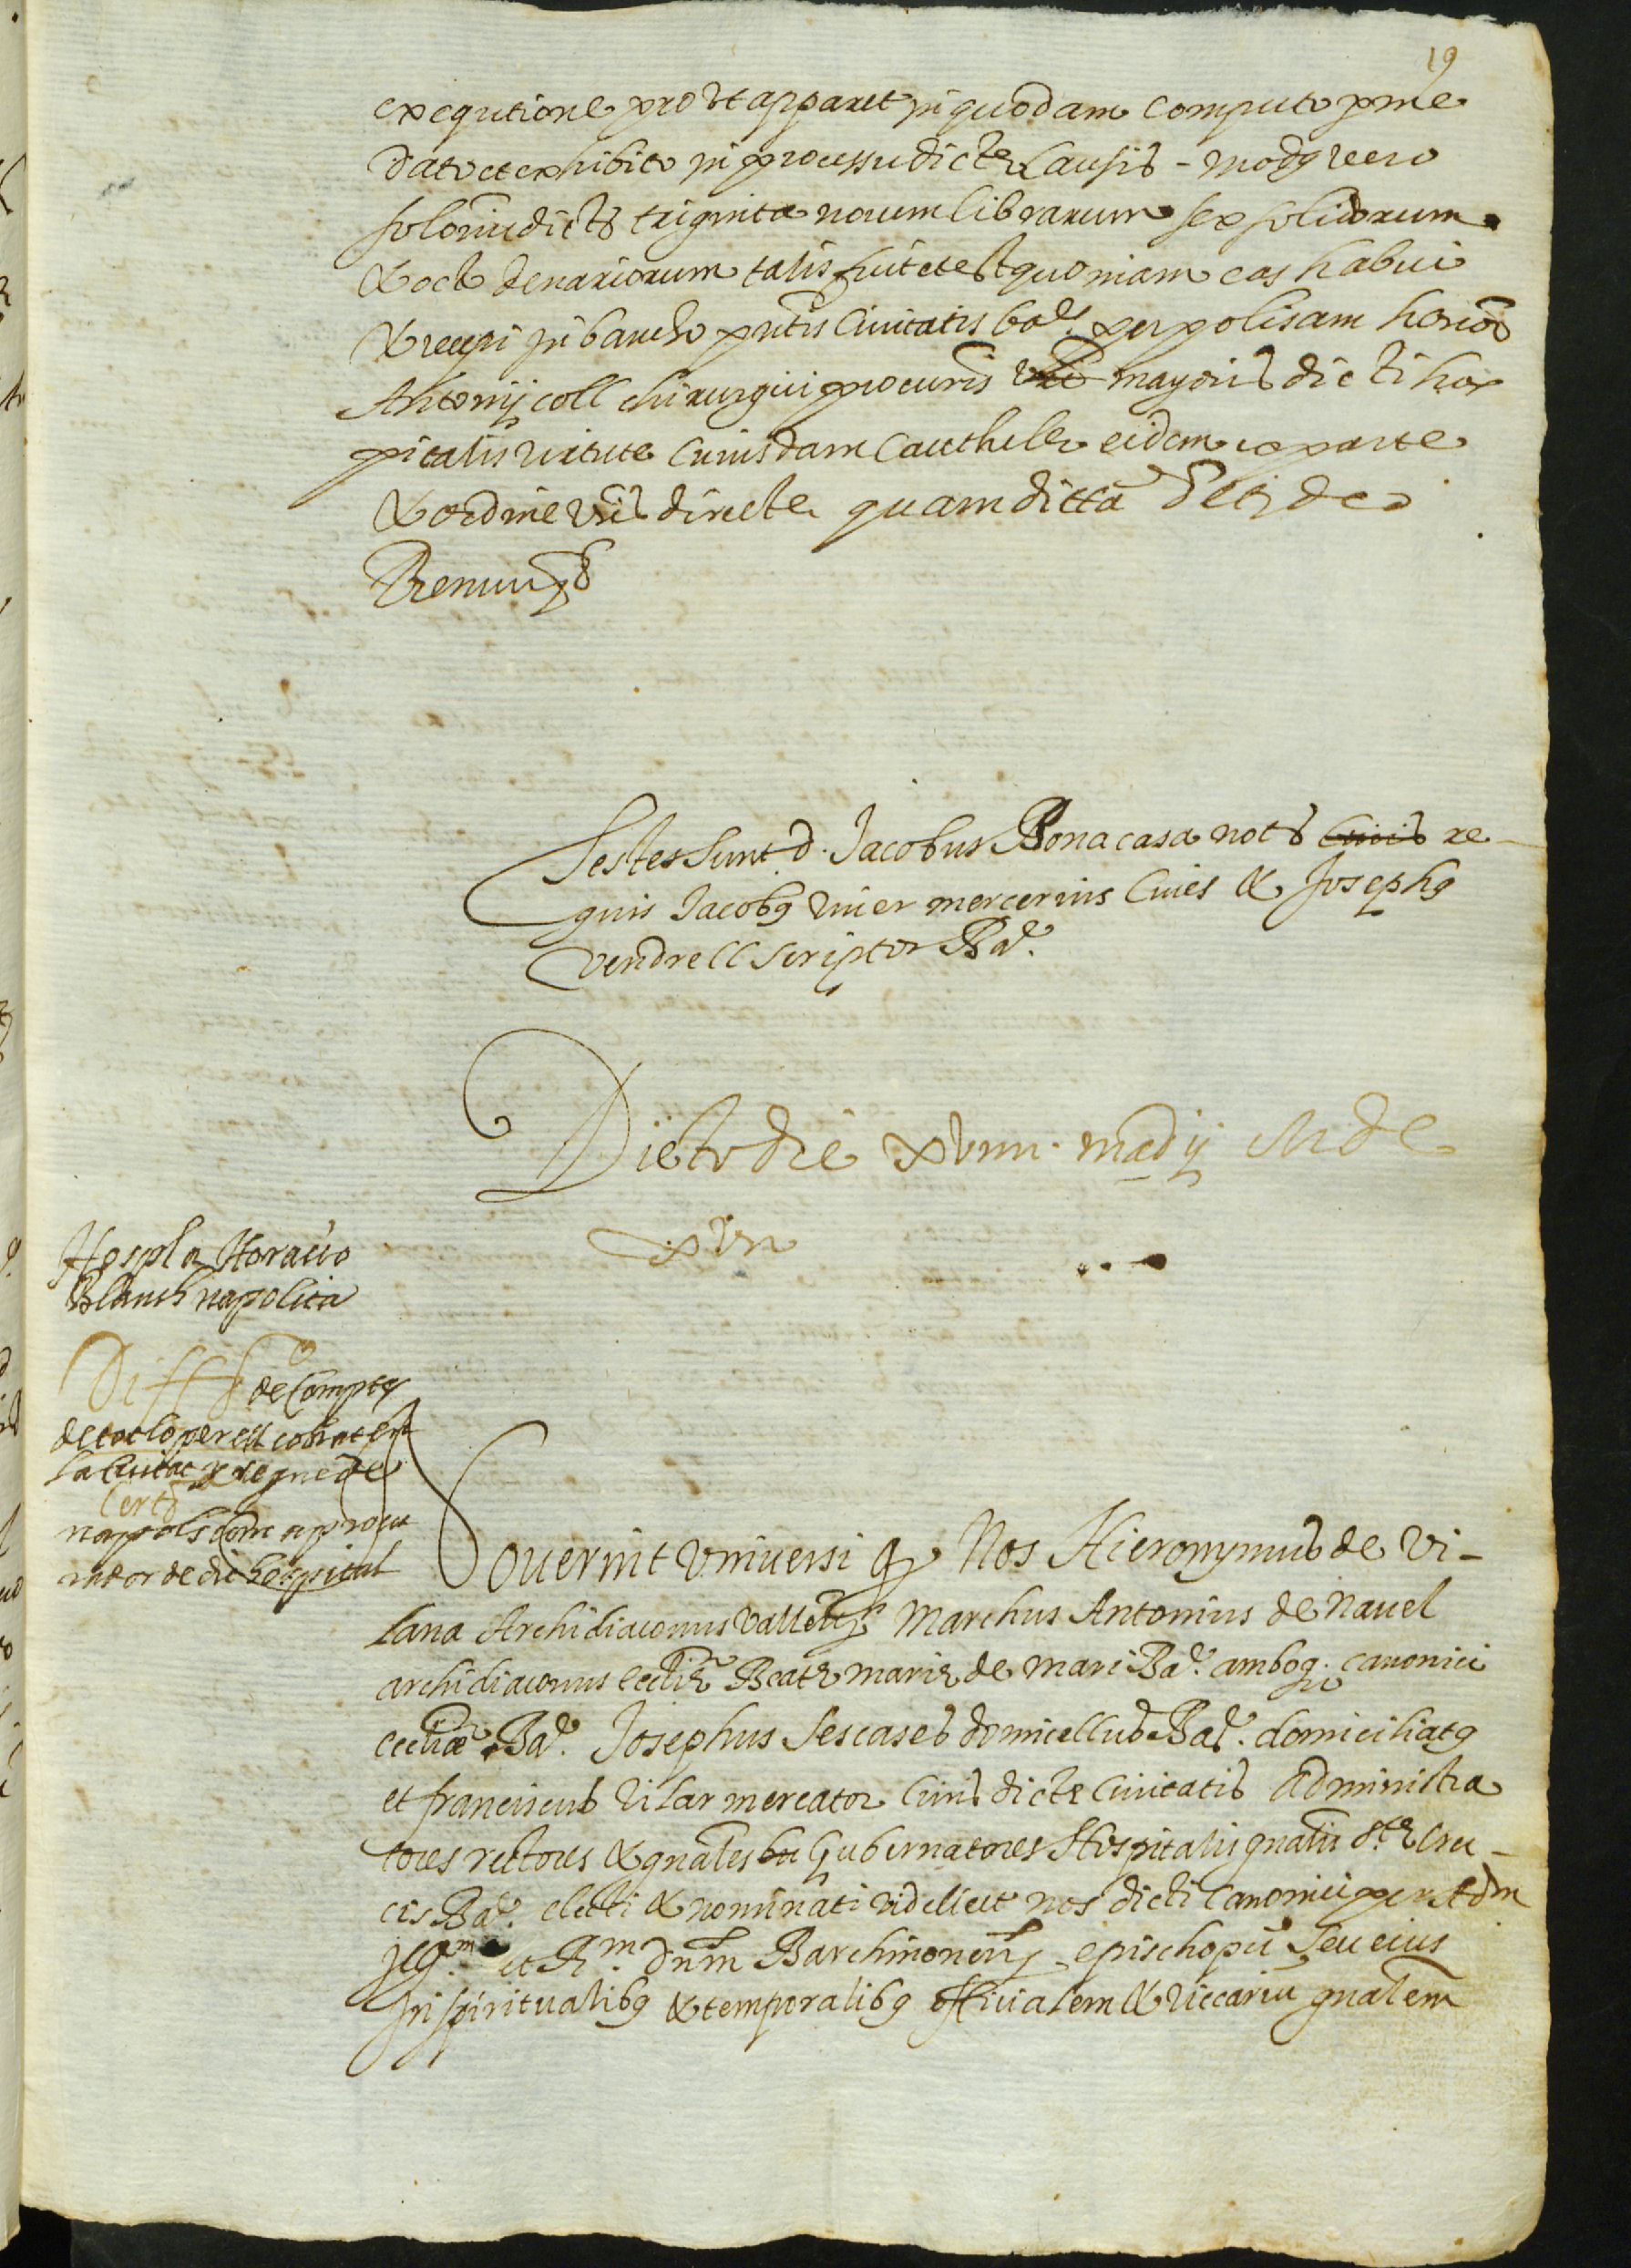 19
exequtione prout apparet in quodam computo p me
dato et exhibito in processu dicte causis - modq vero
soloniu dictȝ triginta novem librarum sex solidorum
& octo denariorum talis fuit et est quoniam eas habui
& recepi in bancho pntis Civitatis bar. per polisam honor
Anthonij coll chirurgii procuris mayoris dicti hos
pitalis virtute cuiusdam cauthele eidem ex parte
& ordine vris directe quam dicta
Renun
Testes sunt d. Jacobus Bonacasa nots re
gius Jacobq viver mercerius Cives & Josephq
vendrell scriptor Bar.
Dicto die xviiii madij
Hospl a Horacio
Blanch napolita
Diff de Comptes
de tot lo per ell cobrat en
la Ciutat y regne de
Cert
napols com a procu
rador de dit hospital
Noverint universi q Nos Hieronymus de Vi-
lana Archidiaconus Vallen Marchus Antonius de Navel
archidiaconus eccliæ Beatę marię de mari Bar. amboq. canonici
eccliæ Bar. Josephus Sescases domicellus Bar. domiciliatq
et franciscus vilar mercator Civis dictę Civitatis Administra
tores rectores & gnales Gubernatores Hospitalis gnalis Stę Cru-
cis Bar. electi & nominati videlicet nos dicti Canonici per Adm
Illm. et Rm. Dnm Barchinonen epischopu seu eius
in spiritualibq & temporalibq officialem & viccariu gnalem